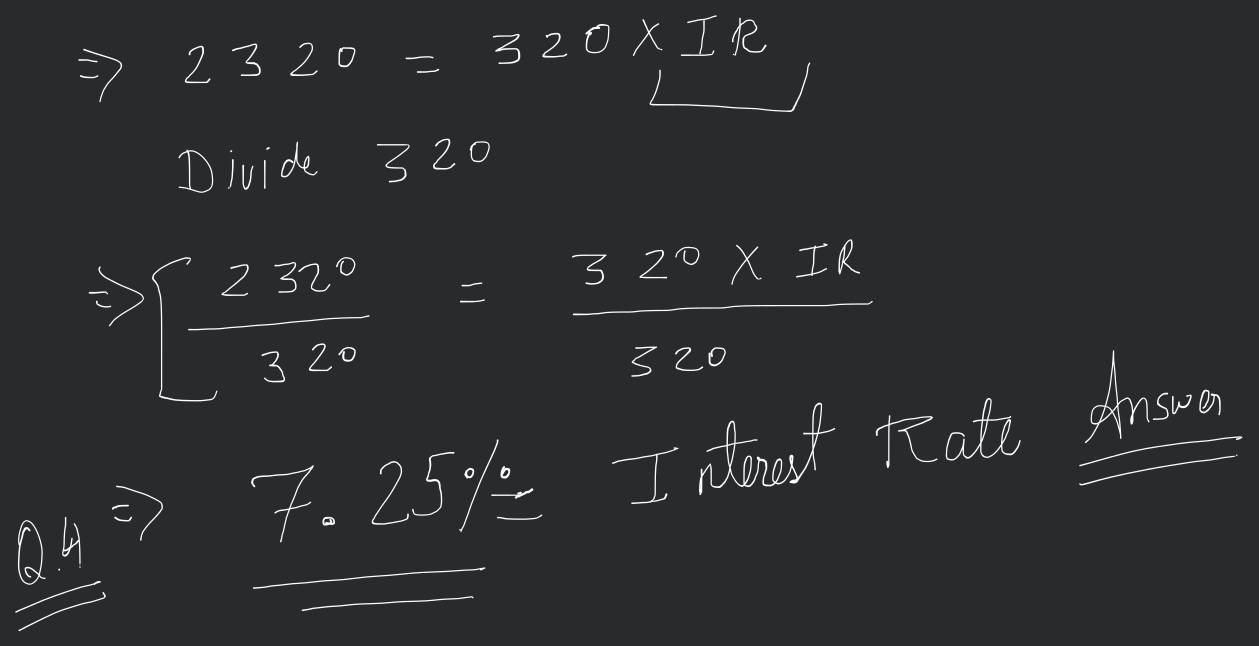 ⇒ 2320 = 320 X IR
Divide 320
⇒ [ 2320 / 320 = 320 X IR / 320
Q.4 ⇒ 7.25% Interest Rate Answer